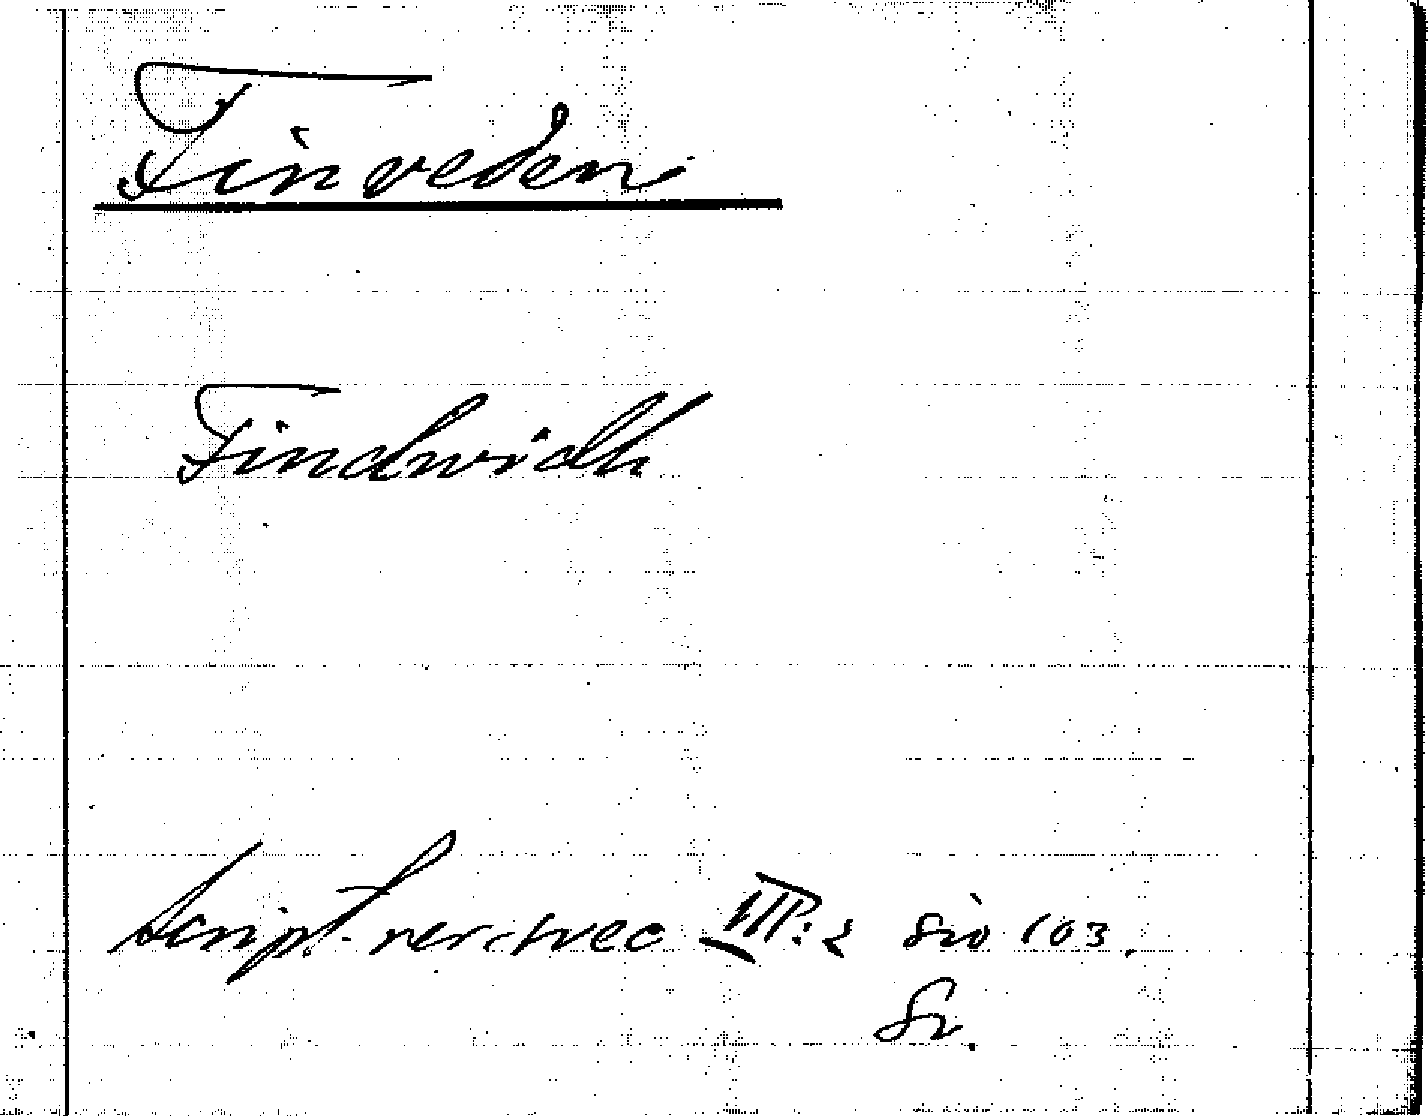 Finveden
Findwidh
Script. rer. svec III:2 sid 103.